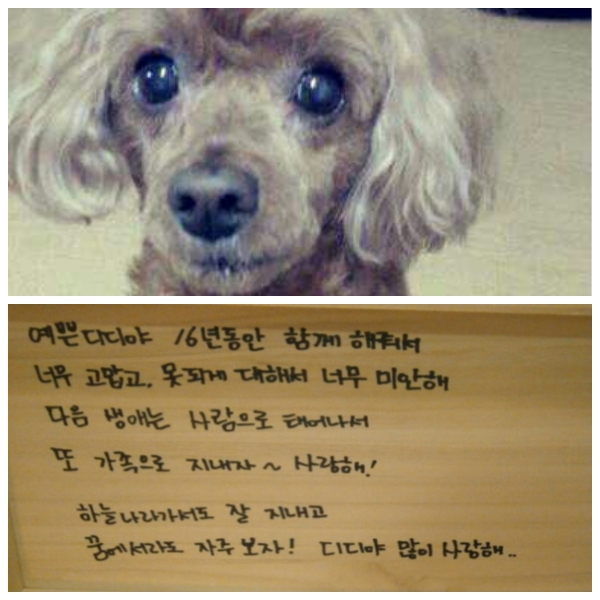 예쁜 디디야 16년동안 함께 해줘서
너무 고맙고, 못되게 대해서 너무 미안해
다음 생애는 사람으로 태어나서
또 가족으로 지내자~ 사랑해!
하늘나라가서도 잘 지내고
꿈에서라도 자주 보자! 디디야 많이 사랑해..